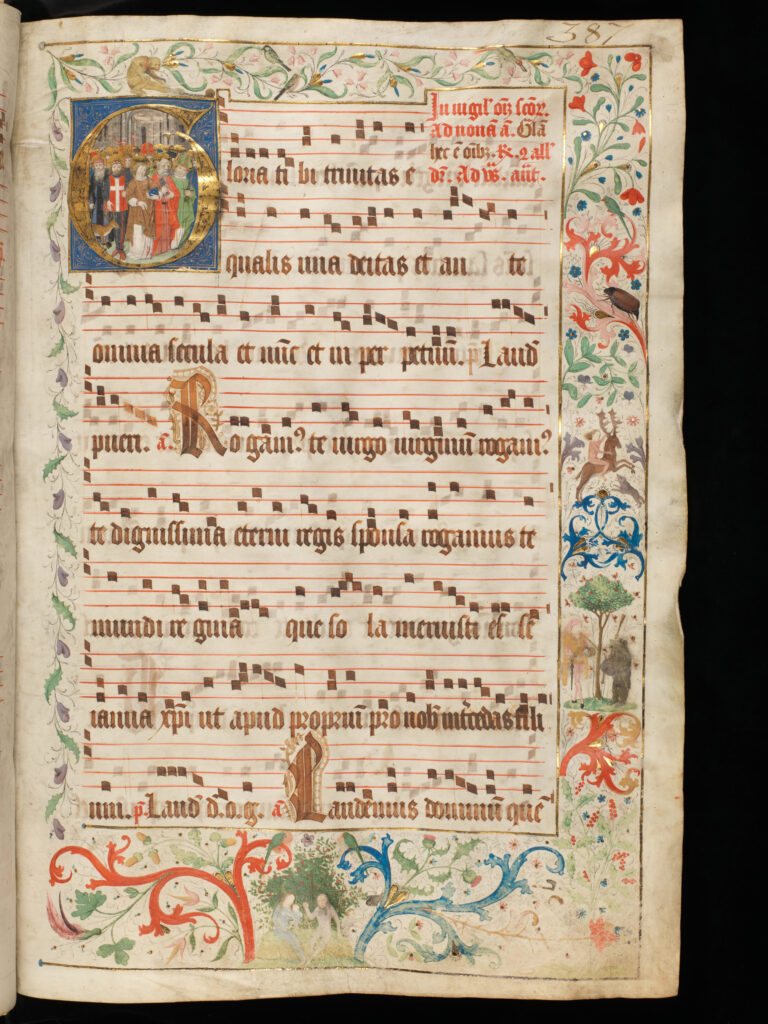 387
In vigil' om̄ sc̄or.
Ad nonā ā. Gl̄a
hec ē oībꝫ. R. 2 all'
Gloria ti bi trinitas e
qualis una deitas et an te
omnia secula et nūc et in per petuū. p̄ Laud
pueri. a. Ro gam᾿ te virgo virginum rogam᾿
te dignissima eterni regis sponsa rogamus te
mundi re gina que so la meruisti
ianua xp̄i ut apud proprium pro nob m̄tcedas fili
um. p̄. Laud d.o.g. a Laudemus dominum quē